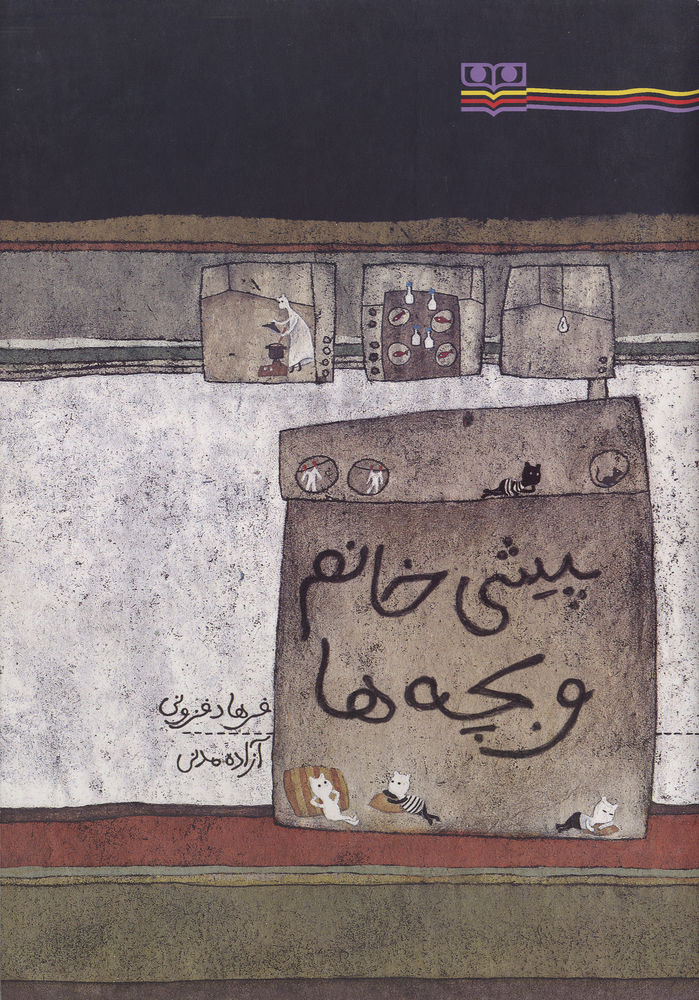 پیشی خانم
و بچه ها
فرهاد فزونی
آزاده مدنی